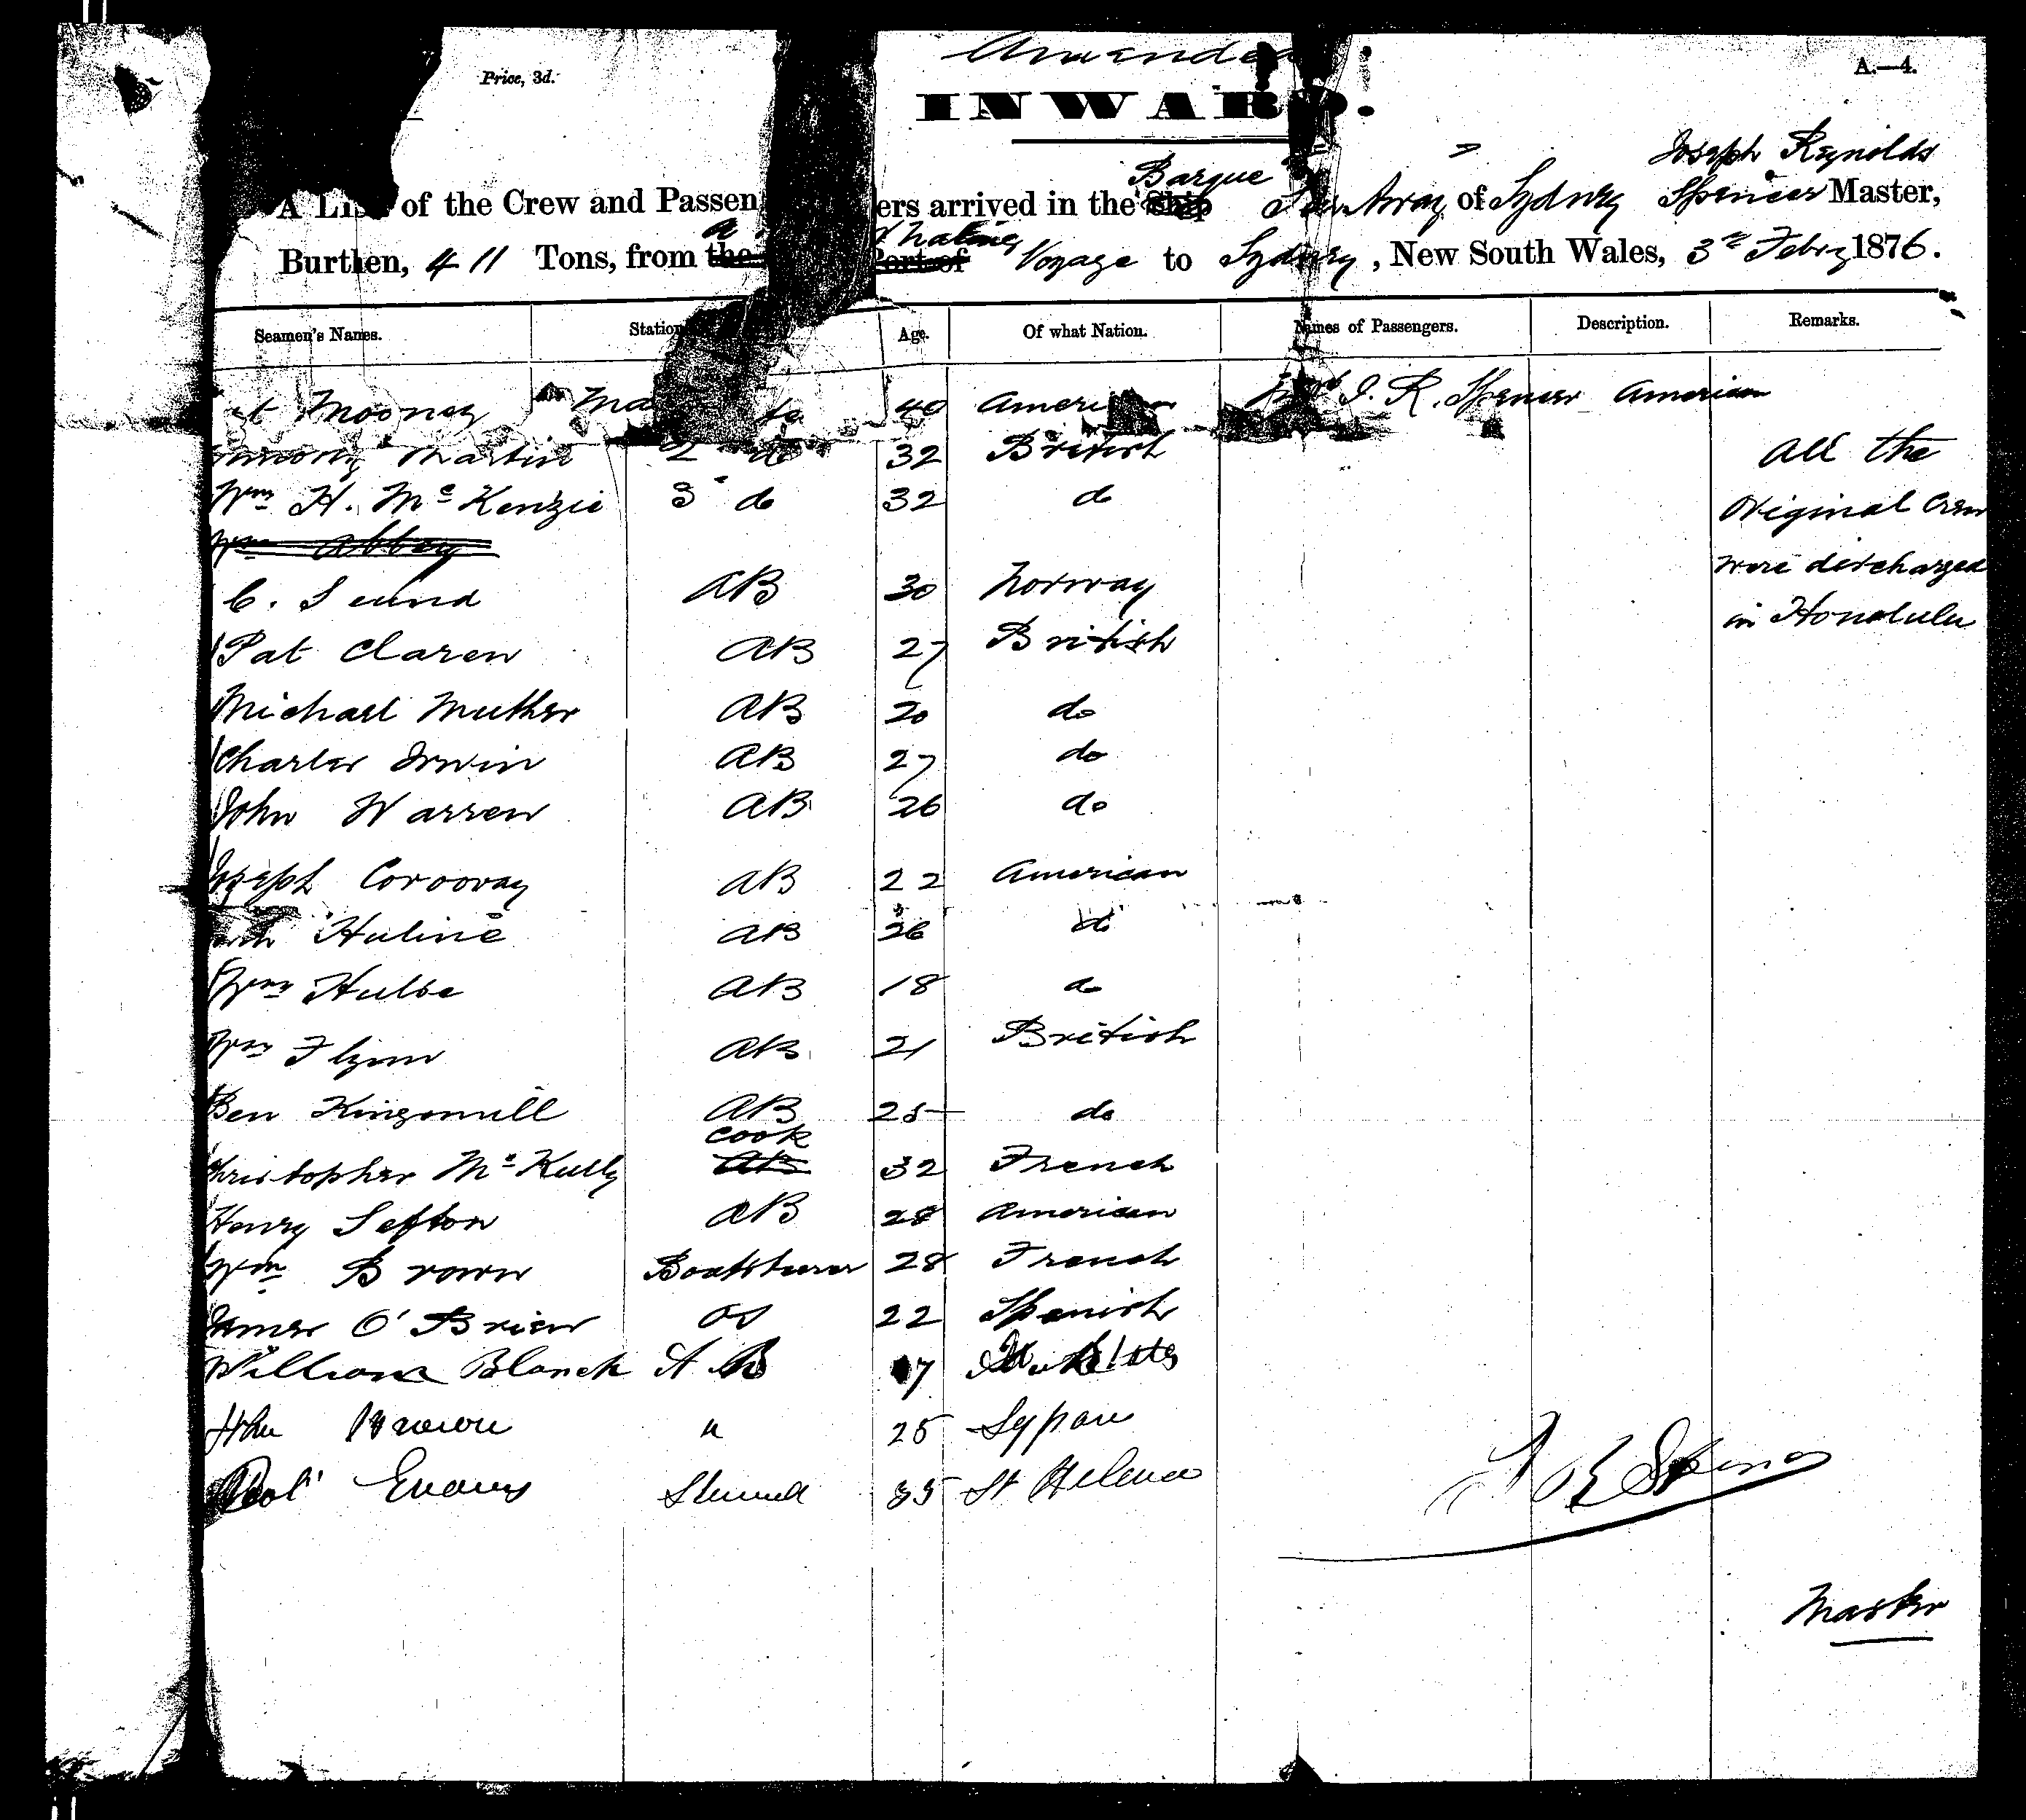 Amended
Price, 3d.
A.—4.
INWARD.
Joseph Reynolds
Barque
A List of the Crew and Passen ers arrived in the ship of Sydney Spencer Master,
a Whaling
Burthen, 411 Tons, from the Port of Voyage to Sydney, New South Wales, 3rd Febry 1876.
Seamen's Names. Station Age. Of what Nation. Names of Passengers. Description. Remarks.
Mooney 40 American J. R. Spencer American
Martin 2 do 32 British All the
Wm H. McKenzie 3 do 32 do Original Crew
Wm Abbey were discharged
C. AB 30 Norway in Honolulu
Pat Claren AB 27 British
Michael Muther AB 20 do
Charles Irwin AB 27 do
John Warren AB 26 do
Joseph AB 22 American
Huline AB 26 do
Wm Hulse AB 18 do
Wm Flynn AB 21 British
Ben Kingsmill AB 25 do
cook
Christopher McKully AB 32 French
Henry Sefton AB 28 American
Wm Brown Boatsteerer 28 French
James O'Brien OS 22 Spanish
William Blanch A B 17
John Brown " 25
Robt Evans 35 St Helena
J R Spencer
Master